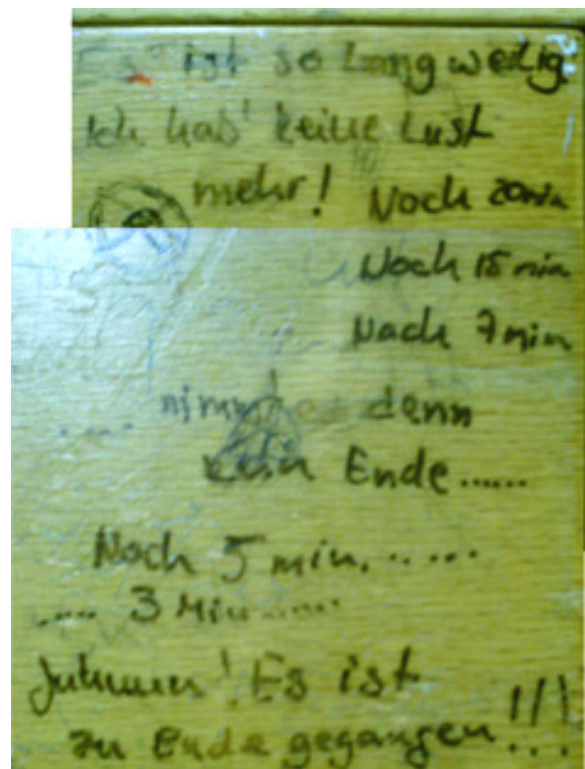 Es ist so Langweilig
Ich hab' keine Lust
mehr! Noch 20min
Noch 15 min
Noch 7 min
..... nimmt es denn
kein Ende ......
Noch 5 min. .. ...
..... 3 Min ......
Es ist
zu Ende gegangen !!!